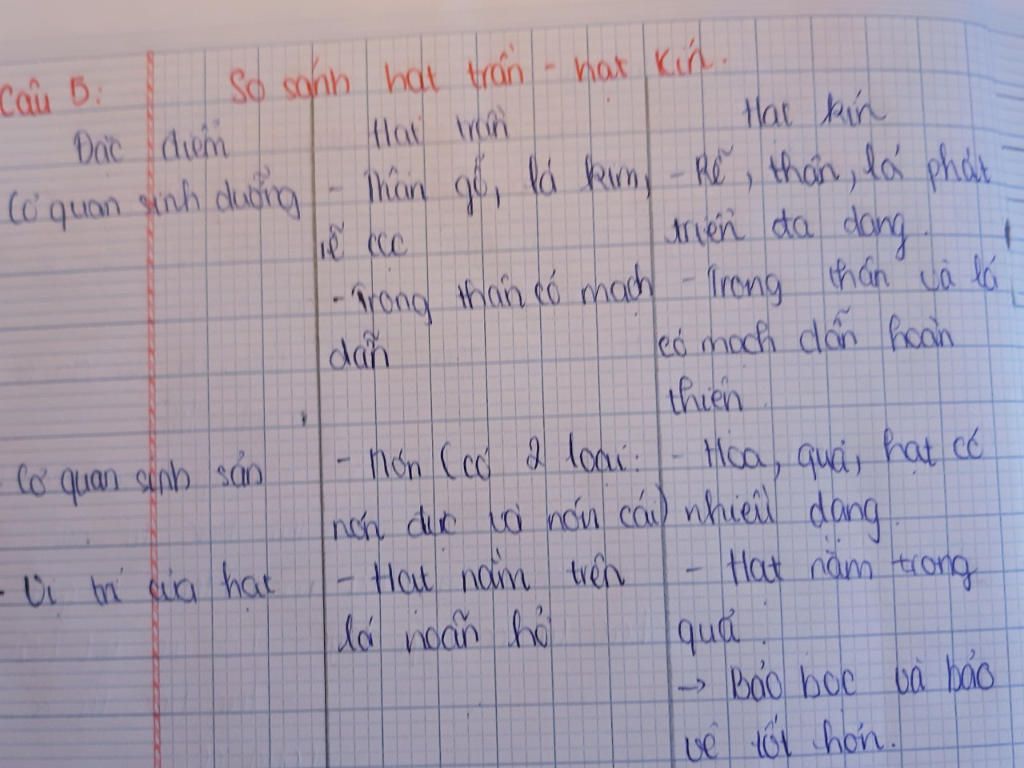 Câu 5: So sánh hạt trần - hạt kín.
Đặc điểm Hạt trần Hạt kín
Cơ quan sinh dưỡng - Thân gỗ, lá kim, - Rễ, thân, lá phát
rễ cọc triển đa dạng.
- Trong thân có mạch - Trong thân và lá
dẫn có mạch dẫn hoàn
thiện
Cơ quan sinh sản - Nón (có 2 loại: - Hoa, quả, hạt có
nón đực và nón cái) nhiều dạng.
- Vị trí của hạt - Hạt nằm trên - Hạt nằm trong
lá noãn hở quả.
→ Bảo bọc và bảo
vệ tốt hơn.